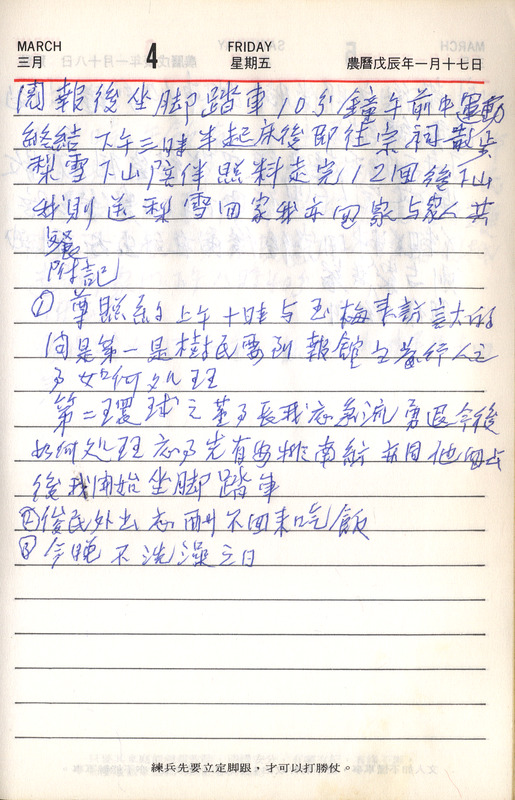 MARCH 4 FRIDAY
三月 星期五 農曆戊辰年一月十七日
閱報後坐脚踏車10分鐘午前中運動
終結 下午三時半起床後即往宗祠散步
梨雪下山陪伴照料走完121回後下山
我則送梨雪回家我亦回家与家人共
餐
附記
① 尊賢約上午十時与玉梅來訪
問是第一是樹民要到報館之發行人之
事如何処理
第二環球之董事長我應急流勇退今後
如何処理應事先有安排南紡亦同他回去
後我開始坐脚踏車
②俊民外出應酬不回來吃飯
③今晚不洗澡之日
練兵先要立定脚跟，才可以打勝仗。